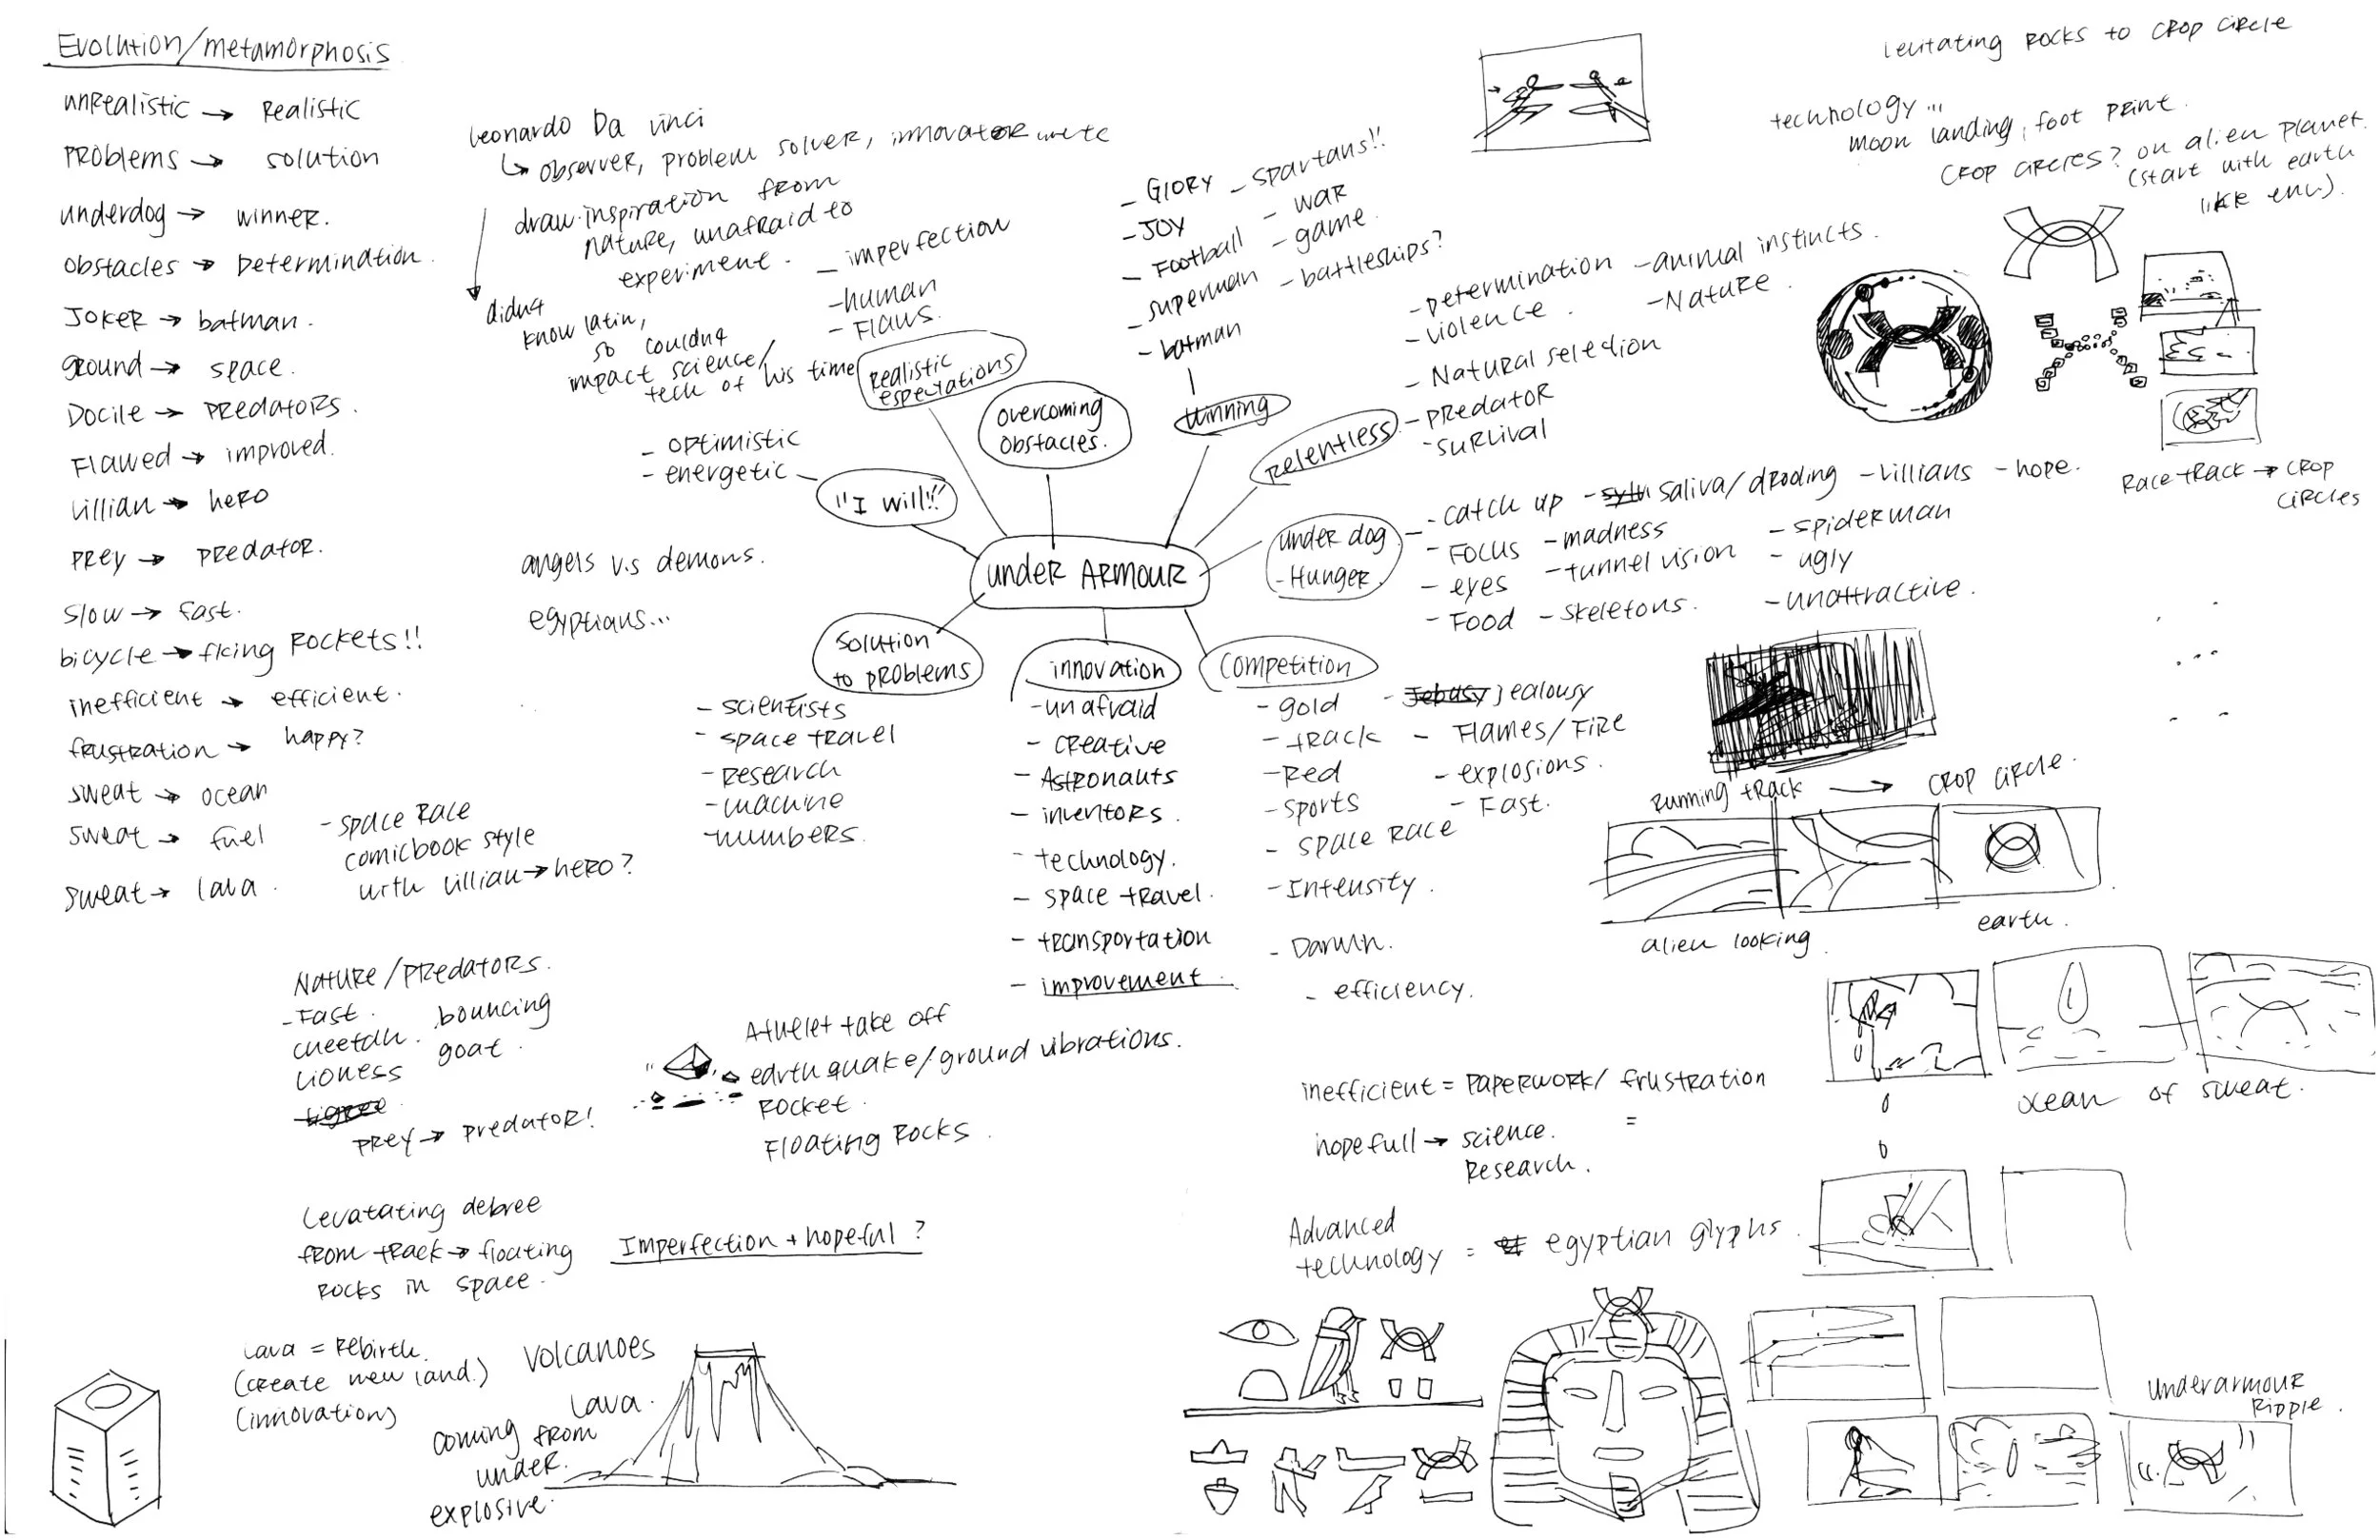 Evolution/metamorphosis
unrealistic → Realistic
PRoblems → solution
underdog → winner.
obstacles → Determination.
JOKER → batman.
ground → space.
Docile → PREDATORS.
Flawed → improved.
Villian → heRO
PREY → PREDATOR.
Slow → Fast.
bicycle → fking Rockets!!
inefficient → efficient.
frustration → happy?
sweat → ocean
sweat → fuel
sweat → lava.
- space Race
comicbook style
with villian → hero?
Leonardo Da vinci
↳ observer, problem solver, innovator
draw inspiration from
nature, unafraid to
experiment.
didnt
know latin,
so couldnt
impact science/
tech of his time
- imperfection
- human
- Flaws.
Realistic
espectations
- optimistic
- energetic
"I will!"
overcoming
obstacles.
- GLORY - spartans!!
- JOY - war
- Football - game.
- superman - battleships?
- batman
winning
- Determination - animal instincts.
- violence. - Nature.
- Natural selection
- predator
- survival
Relentless
under dog
- Hunger
- catch up - saliva/drooling - villians - hope.
- Focus - madness - spiderman
- eyes - tunnel vision - ugly
- Food - skeletons. - unattractive.
under ARMOUR
angels v.s demons.
egyptians...
solution
to problems
- scientists
- space travel
- research
- machine
- numbers.
innovation
- unafraid
- creative
- Astronauts
- inventors.
- technology.
- space travel.
- transportation
- improvement.
competition
- gold - jealousy
- track - Flames/Fire
- Red - explosions.
- sports - Fast.
- space race
- Intensity.
- Darwin.
- efficiency.
levitating Rocks to crop circle
technology...
moon landing, foot print.
crop circles? on alien planet.
(start with earth
like env).
Race track → crop
circles
Running track → crop circle.
alien looking
earth.
ocean of sweat.
Nature/Predators.
- Fast.
cheetah. bouncing
Lioness goat.
tigree
prey → predator!
Athelet take off
earth quake/ground vibrations.
Rocket.
Floating Rocks.
Levatating debree
from track → floating
rocks in space.
Imperfection + hopeful?
inefficient = paperwork/ frustration
=
hopefull → science.
Research.
Advanced
technology = egyptian glyphs.
Lava = Rebirth.
(create new land.)
(innovation)
Volcanoes
lava.
coming from
under.
explosive.
underarmour
Ripple.